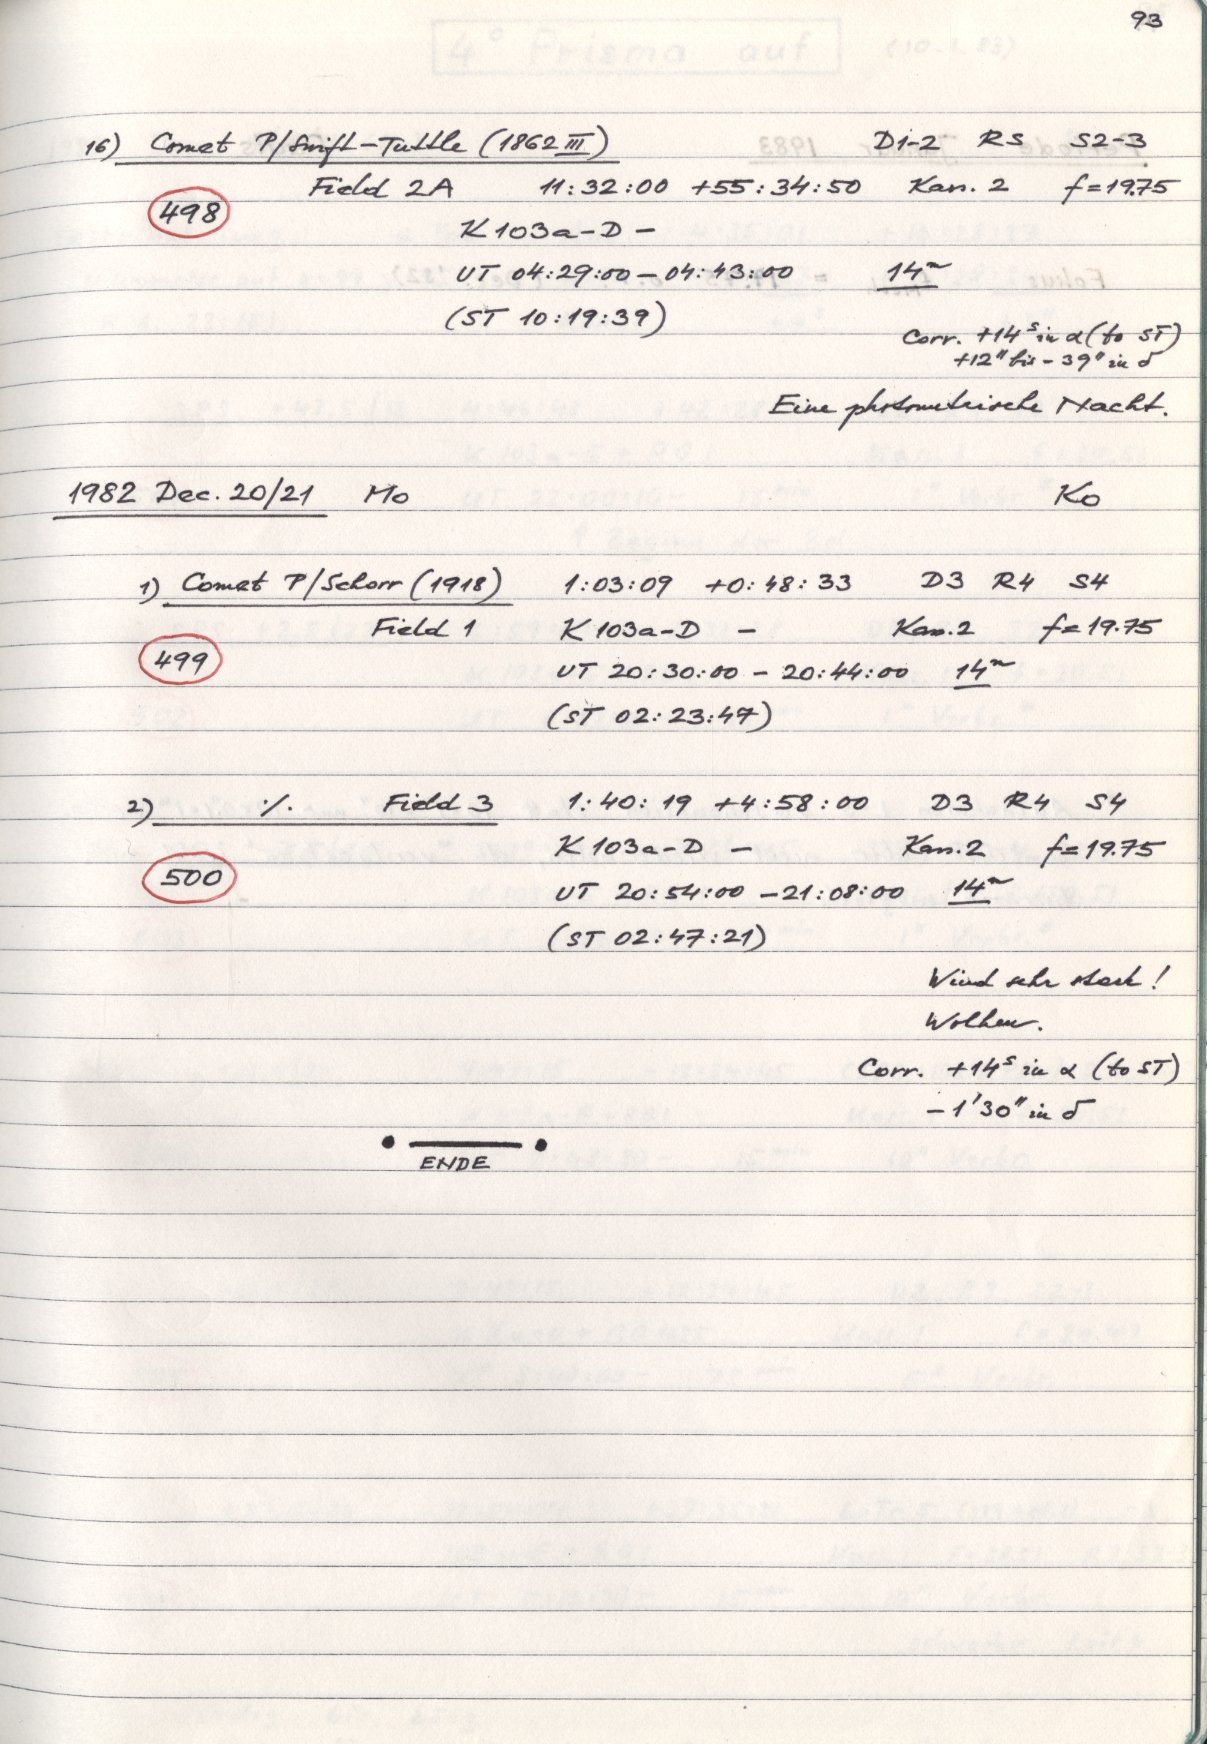 93
16) Comet P/Swift-Tuttle (1862 III) D1-2 R5 S2-3
Field 2A 11:32:00 +55:34:50 Kan. 2 f=19.75
498
K 103a-D -
UT 04:29:00 - 04:43:00 14m
(ST 10:19:39)
Corr. +14s in α (to ST)
+12" bis -39" in δ
Eine photometrische Nacht.
1982 Dec. 20/21 Mo Ko
1) Comet P/Schorr (1918) 1:03:09 +0:48:33 D3 R4 S4
Field 1 K 103a-D - Kan. 2 f=19.75
499
UT 20:30:00 - 20:44:00 14m
(ST 02:23:47)
2) ·/. Field 3 1:40:19 +4:58:00 D3 R4 S4
K 103a-D - Kan. 2 f=19.75
500
UT 20:54:00 - 21:08:00 14m
(ST 02:47:21)
Wind sehr stark!
Wolken.
Corr. +14s in α (to ST)
-1'30" in δ
ENDE